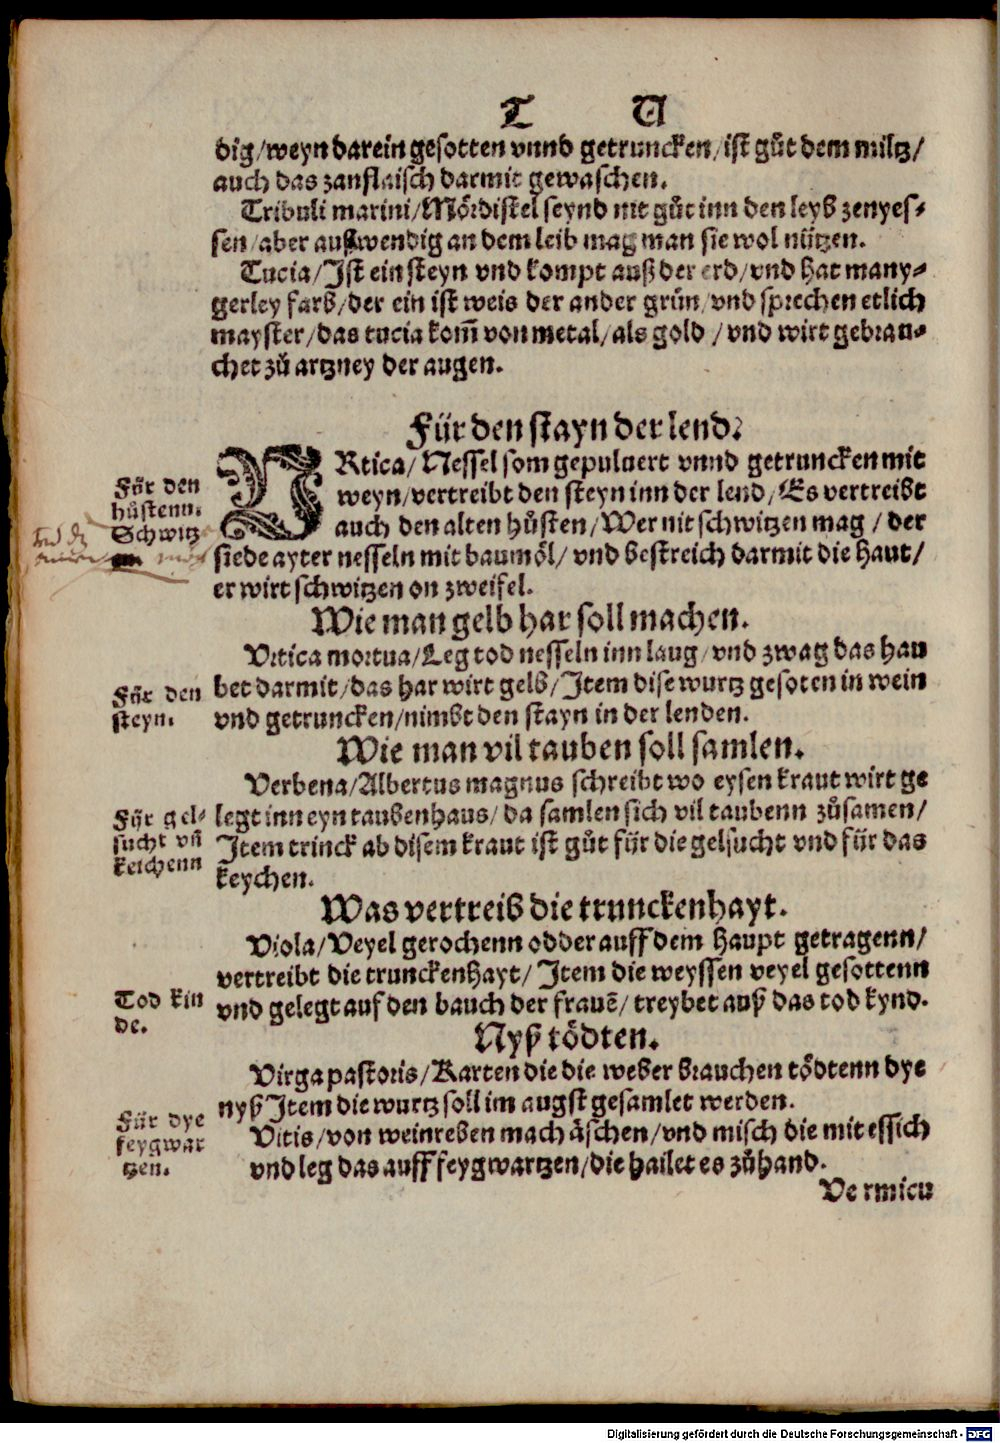 T V
dig/weyn darein gesotten vnnd getruncken/ist gůt dem miltz/
auch das zanflaisch darmit gewaschen.
Tribuli marini/Mördistel seynd nit gůt inn den leyb zenyes-
sen/aber außwendig an dem leib mag man sie wol nützen.
Tucia/Jst ein steyn vnd kompt auß der erd/vnd hat many-
gerley farb/der ein ist weis der ander grün/vnd sprechen etlich
mayster/das tucia kom̃ von metal/als gold/vnd wirt gebrau-
chet zů artzney der augen.
Für den stayn der lend.
VRtica/Nessel som gepuluert vnnd getruncken mit
weyn/vertreibt den steyn inn der lend/Es vertreibt
auch den alten hůsten/Wer nit schwitzen mag/der
siede ayter nesseln mit baumöl/vnd bestreich darmit die haut/
er wirt schwitzen on zweifel.
Für den
hůstenn.
Schwitz
Wie man gelb har soll machen.
Vrtica mortua/Leg tod nesseln inn laug/vnd zwag das hau
bet darmit/das har wirt gelb/Jtem dise wurtz gesoten in wein
vnd getruncken/nimbt den stayn in der lenden.
Für den
steyn.
Wie man vil tauben soll samlen.
Verbena/Albertus magnus schreibt wo eysen kraut wirt ge
legt inn eyn taubenhaus/da samlen sich vil taubenn zůsamen/
Jtem trinck ab disem kraut ist gůt für die gelsucht vnd für das
keychen.
Für gel-
sucht vñ
keichenn
Was vertreib die trunckenhayt.
Viola/Veyel gerochenn odder auff dem haupt getragenn/
vertreibt die trunckenhayt/Jtem die weyssen veyel gesottenn
vnd gelegt auf den bauch der frauẽ/treybet auß das tod kynd.
Tod kin
de.
Nyß tödten.
Virga pastoris/Karten die die weber brauchen tödtenn dye
nyß Jtem die wurtz soll im augst gesamlet werden.
Vitis/von weinreben mach äschen/vnd misch die mit essich
vnd leg das auff feygwartzen/die hailet es zůhand.
Für dye
feygwar
tzen.
Vermicu
Digitalisierung gefördert durch die Deutsche Forschungsgemeinschaft - DFG